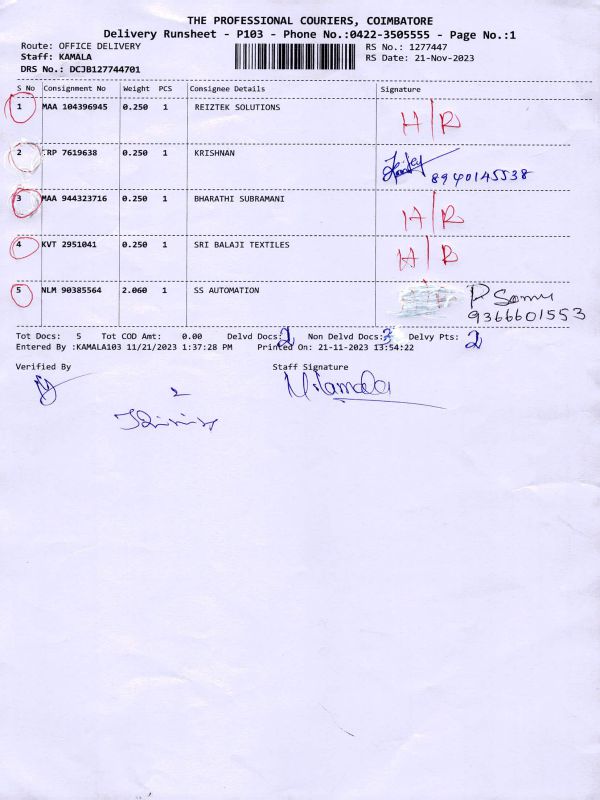 THE PROFESSIONAL COURIERS, COIMBATORE
Delivery Runsheet - P103 - Phone No.:0422-3505555 - Page No.:1
Route: OFFICE DELIVERY RS No.: 1277447
Staff: KAMALA RS Date: 21-Nov-2023
DRS No.: DCJB127744701
S No Consignment No Weight PCS Consignee Details Signature
1 MAA 104396945 0.250 1 REIZTEK SOLUTIONS
H/R
2 TRP 7619638 0.250 1 KRISHNAN
8940145538
3 MAA 944323716 0.250 1 BHARATHI SUBRAMANI
H/R
4 KVT 2951041 0.250 1 SRI BALAJI TEXTILES
H/R
5 NLM 90385564 2.060 1 SS AUTOMATION
P Somu
9366601553
Tot Docs: 5 Tot COD Amt: 0.00 Delvd Docs: 2 Non Delvd Docs: 3 Delvy Pts: 2
Entered By :KAMALA103 11/21/2023 1:37:28 PM Printed On: 21-11-2023 13:54:22
Verified By Staff Signature